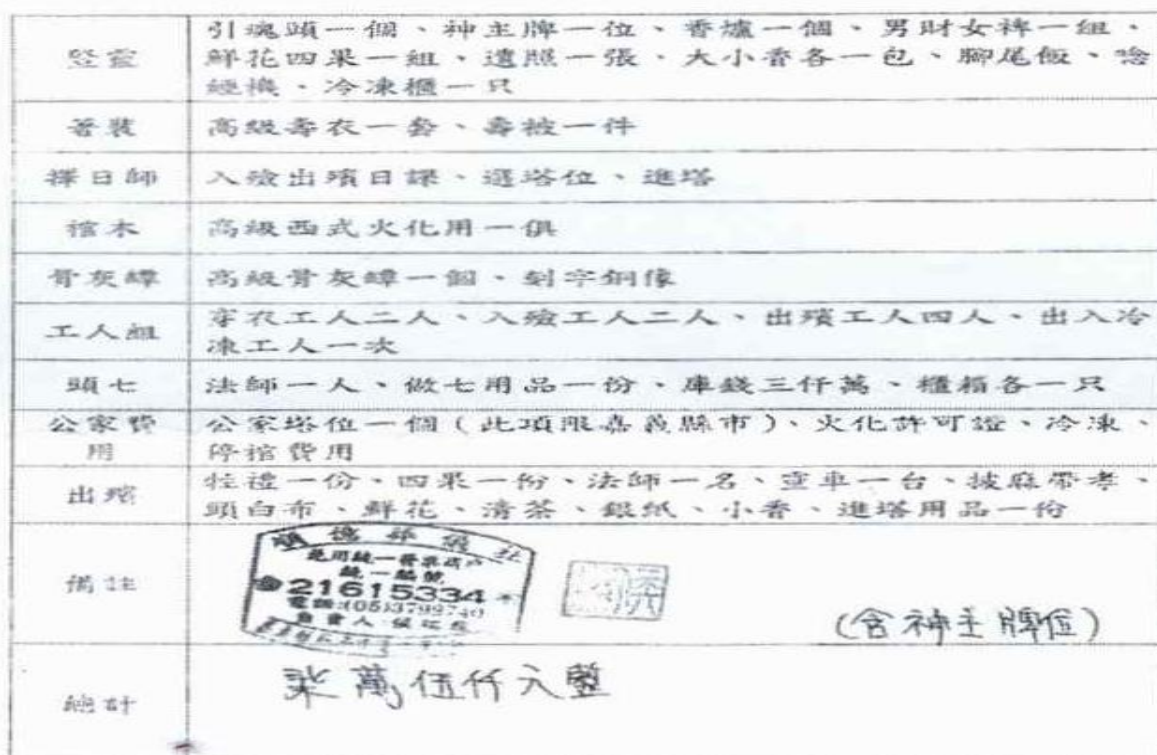 豎靈
引魂頭一個、神主牌一位、香爐一個、男財女婢一組、
鮮花四果一組、遺照一張、大小香各一包、腳尾飯、唸
經機、冷凍櫃一只
著裝
高級壽衣一套、壽被一件
擇日師
入殮出殯日課、選塔位、進塔
棺木
高級西式火化用一俱
骨灰罈
高級骨灰罈一個、刻字銅像
工人組
穿衣工人二人、入殮工人二人、出殯工人四人、出入冷
凍工人一次
頭七
法師一人、做七用品一份、庫錢三仟萬、櫃箱各一只
公家費
用
公家塔位一個(此項限嘉義縣市)、火化許可證、冷凍、
停棺費用
出殯
牲禮一份、四果一份、法師一名、靈車一台、披麻帶孝、
頭白布、鮮花、清茶、銀紙、小香、進塔用品一份
備註
葬儀社
免用統一發票
統一編號
21615334
電話:(05)3799740
負責人
(含神主牌位)
總計
柒萬伍仟元整